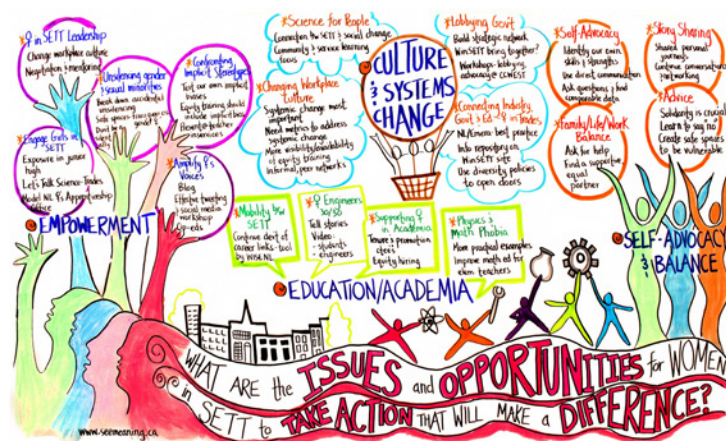 *♀ in SETT Leadership
Change workplace culture
Negotiation & mentoring
*Unsilencing gender
& sexual minorities
Break down accidental
unsilencing
*Confronting
Implicit Stereotypes
Test our own implicit
biases
Equity training should
include implicit bias
*Engage Girls in
SETT
Exposure in junior
high
Let's Talk Science-Trades
*Amplify ♀'s
Voices
Blog
Effective tweeting
& social media
workshop
Op-eds
EMPOWERMENT
*Science for People
Connection b/w SETT & social change
Community & service learning
focus
*Changing Workplace
Culture
Systemic change most
important
Need metrics to address
systemic change
More visibility/availability
of equity training
Informal, peer networks
CULTURE
& SYSTEMS
CHANGE
*Lobbying Gov't
Build strategic network
WinSETT bring together?
Workshop-lobbying
advocacy @ CCWEST
*Connecting Industry
Gov't & Ed in Trades
NL/Emera best practice
Info repository on
WinSETT site
Use diversity policies
to open doors
*Self-Advocacy
Identify our own
skills & strengths
Use direct communication
Ask questions & find
comparable data
*Family/Life/Work
Balance
Ask for help
Find a supportive,
equal
partner
*Story Sharing
Shared personal
journeys
Continue conversations
& networking
*Advice
Solidarity is crucial
Learn to say no
Create safe spaces
to be vulnerable
SELF-ADVOCACY
&
BALANCE
*Mobility b/w
SETT
Continue dev't of
career links-tool
by WISENL
*♀ Engineers
30/30
Tell stories
Video:
- students
- engineers
*Supporting ♀
in Academia
Tenure & promotion
Equity hiring
*Physics &
Math Phobia
More practical examples
Improve math ed for
elem teachers
EDUCATION/ACADEMIA
WHAT ARE the ISSUES and OPPORTUNITIES for WOMEN
in SETT to TAKE ACTION THAT WILL MAKE a DIFFERENCE?
www.seemeaning.ca